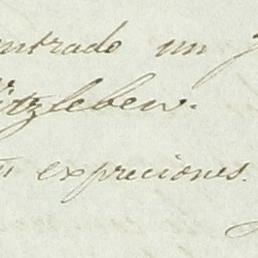 entrado un
itzleben.
expreciones.